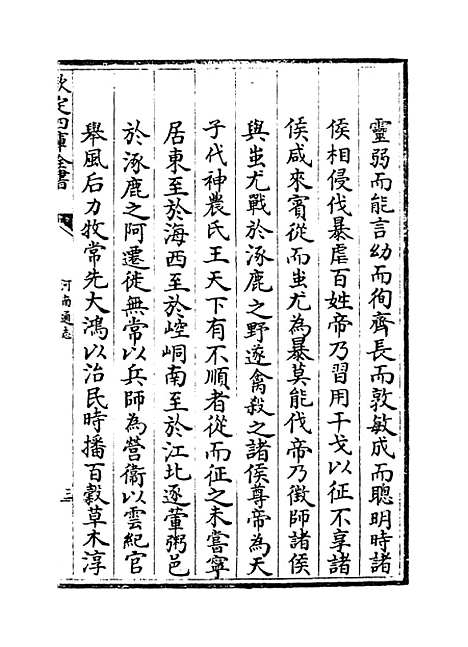 靈弱而能言幼而徇齊長而敦敏成而聰明時諸
侯相侵伐暴虐百姓帝乃習用干戈以征不享諸
侯咸來賓從而蚩尤為暴莫能伐帝乃徴師諸侯
與蚩尤戰於涿鹿之野遂禽殺之諸侯尊帝為天
子代神農氏王天下有不順者從而征之未嘗寧
居東至於海西至於崆峒南至於江北逐葷粥邑
於涿鹿之阿遷徙無常以兵師為營衛以雲紀官
舉風后力牧常先大鴻以治民時播百穀草木淳
欽定四庫全書
河南通志
三